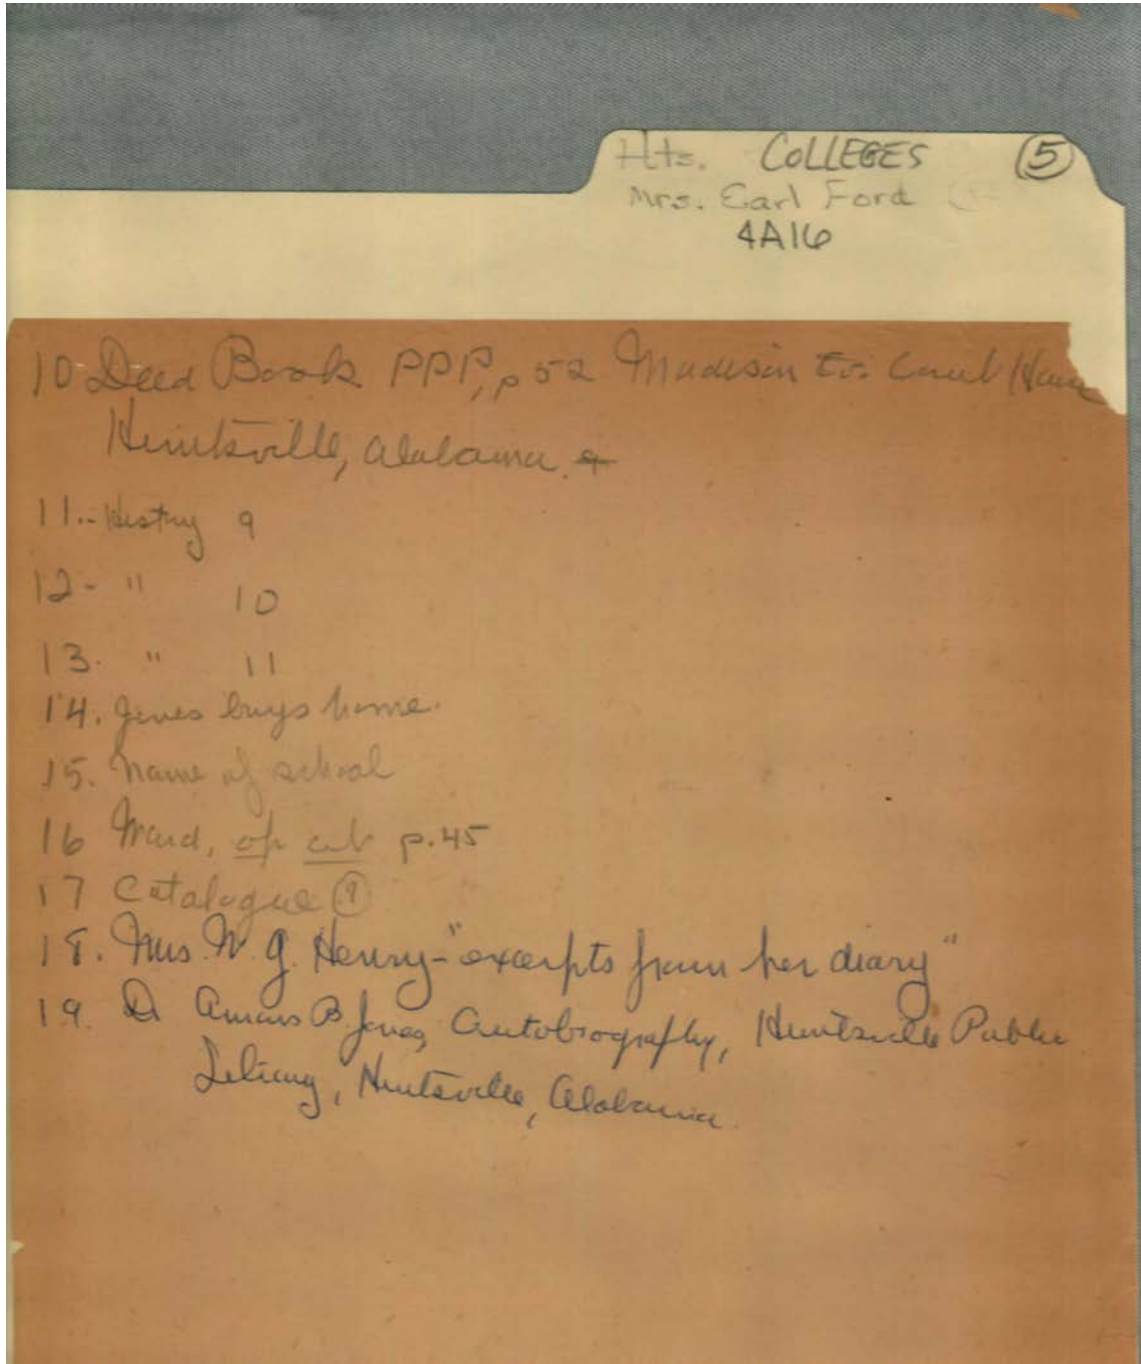 Hts. COLLEGES 5
Mrs. Earl Ford
4A16
10 Deed Book PPP, p 52 Madison Co. Court House
Huntsville, Alabama.
11.. History 9
12 - " 10
13. " 11
14. Jones buys home.
15. Name of school
16 Ward, op cit p.45
17 Catalogue 9
18. Mrs. W. G. Henry - "excerpts from her diary"
19. Dr B Jones, Autobiography, Huntsville Public
Library, Huntsville, Alabama.